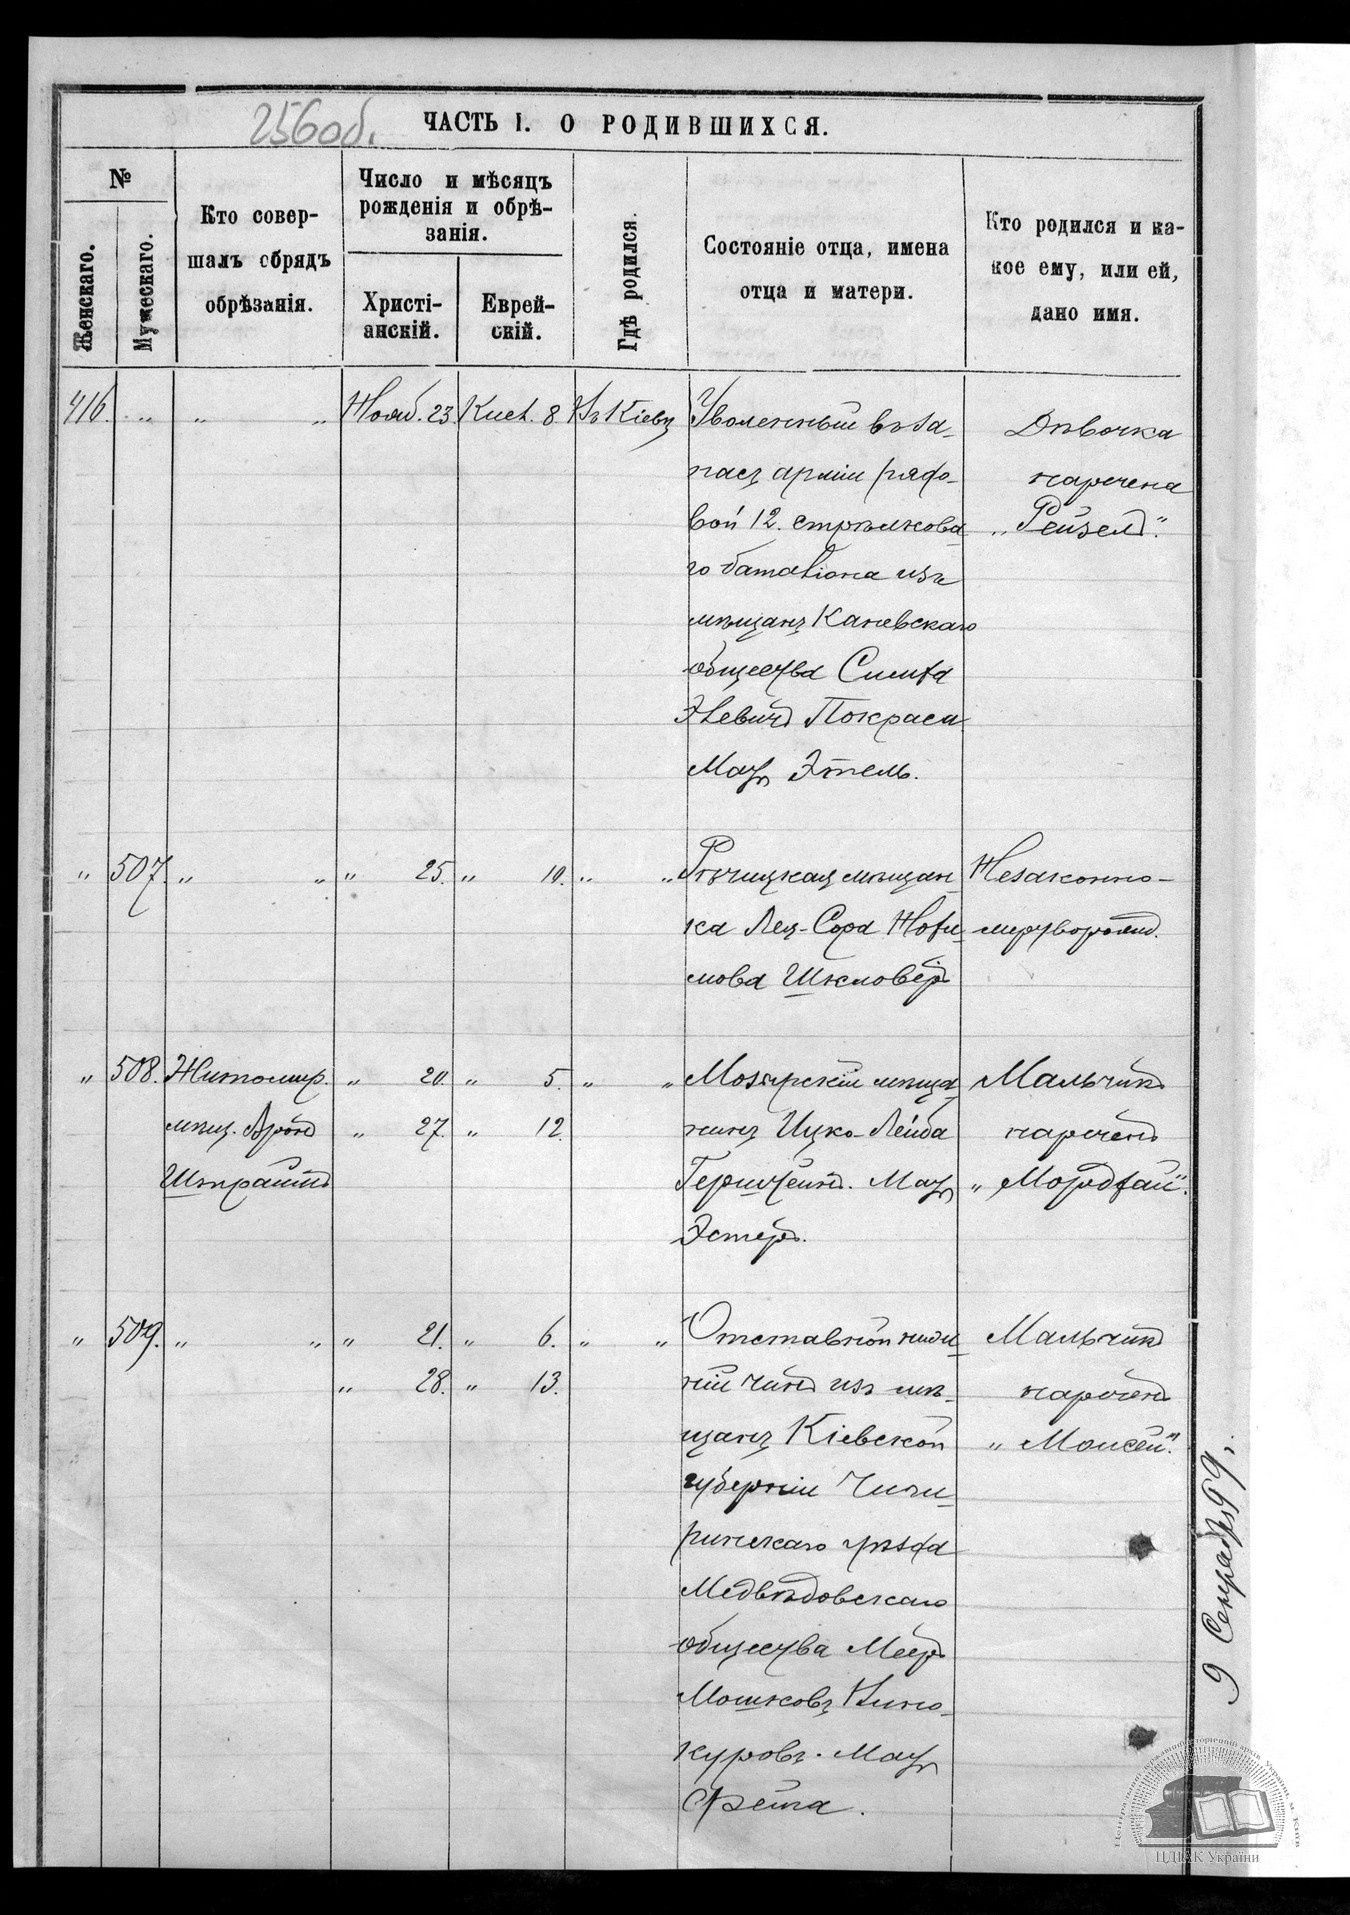 256об.
ЧАСТЬ I. О РОДИВШИХСЯ.
№
Женскаго.
Мужескаго.
Кто совер-
шалъ обрядъ
обрѣзанія.
Число и мѣсяцъ
рожденія и обрѣ-
занія.
Христі-
анскій.
Еврей-
скій.
Гдѣ родился.
Состояніе отца, имена
отца и матери.
Кто родился и ка-
кое ему, или ей,
дано имя.
416. „ „ „ Нояб. 23. Кисл. 8. Въ Кіевѣ
Уволенный въ за-
пасъ арміи рядо-
вой 12. стрѣлкова-
го баталіона изъ
мѣщанъ Каневскаго
общества Симха
Элевичъ Покраса
Мать Этель.
Дѣвочка
наречена
„Рейзел".
„ 507. „ „ „ 25. „ 10. „ „
Рѣчицкая мѣщан-
ка Лея-Сора
мова Шкловеръ
Незаконно-
мертворожд.
„ 508. Житомир. „ 20. „ 5. „ „
мѣщ. Аронъ „ 27. „ 12.
Штраимъ
Мозырскій мѣща-
нинъ Ицко-Лейба
Мать
Эстеръ.
Мальчикъ
нареченъ
„Мордхай".
„ 509. „ „ „ 21. „ 6. „ „
„ 28. „ 13.
Отставной ниж-
ній чинъ изъ мѣ-
щанъ Кіевской
губерніи Чиги-
ринскаго уѣзда
Медвѣдовскаго
общества Меер
Мошковъ Вино-
куровъ. Мать
Фейга.
Мальчикъ
нареченъ
„Моисей".
9 Сентября 99 г.
ЦДІАК України